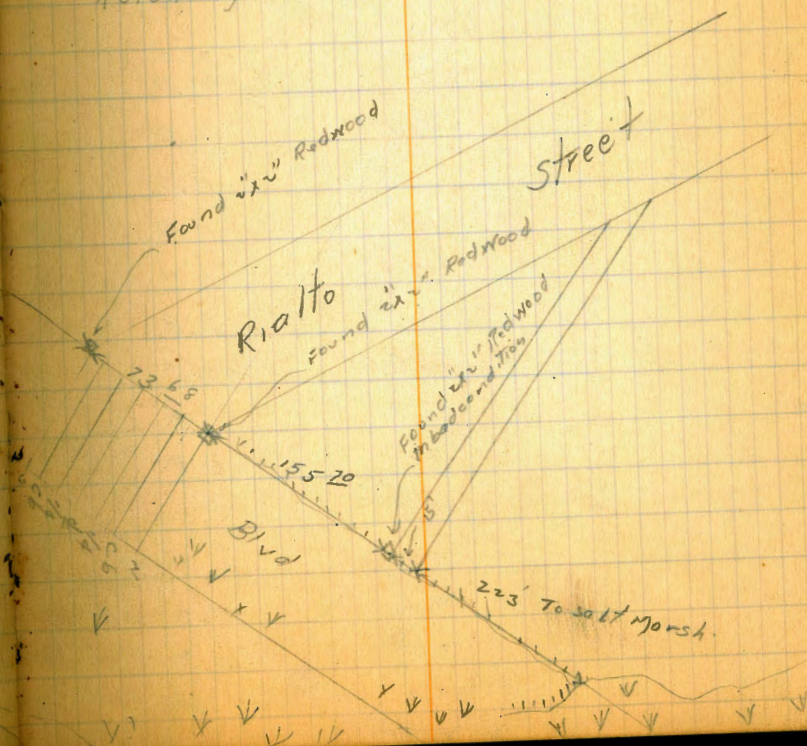 Found 2"x2" Redwood
Street
Rialto
Found 2"x2" Redwood
Found 2"x2" Redwood
in bad condition
73 68
155 70
15'
Blvd
223' To salt Marsh.